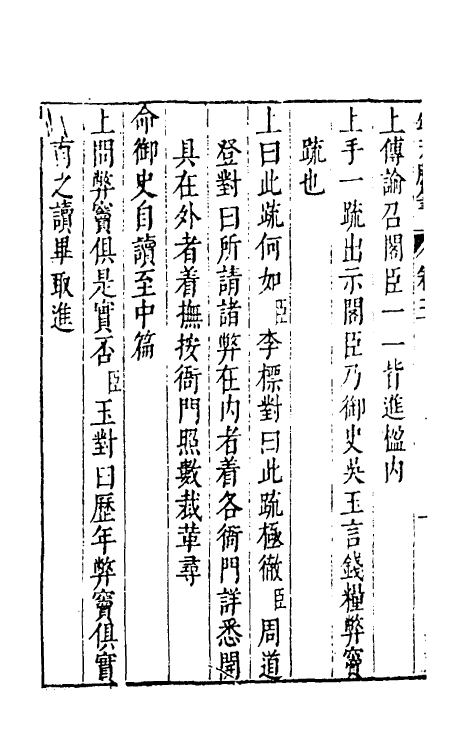 上傳諭召閣臣一一皆進楹內
上手一疏出示閣臣乃御史吳玉言錢糧弊竇
疏也
上曰此疏何如臣李標對曰此疏極徹臣周道
登對曰所請諸弊在內者着各衙門詳悉開
具在外者着撫按衙門照數裁革尋
命御史自讀至中篇
上問弊竇俱是實否臣玉對曰歷年弊竇俱實
有之讀畢取進